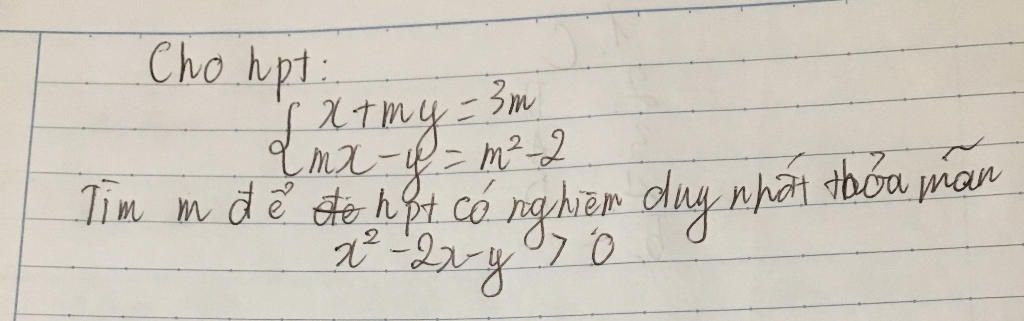 Cho hpt:
{ x + my = 3m
mx - y = m² - 2
Tìm m để hpt có nghiệm duy nhất thỏa mãn
x² - 2x - y > 0